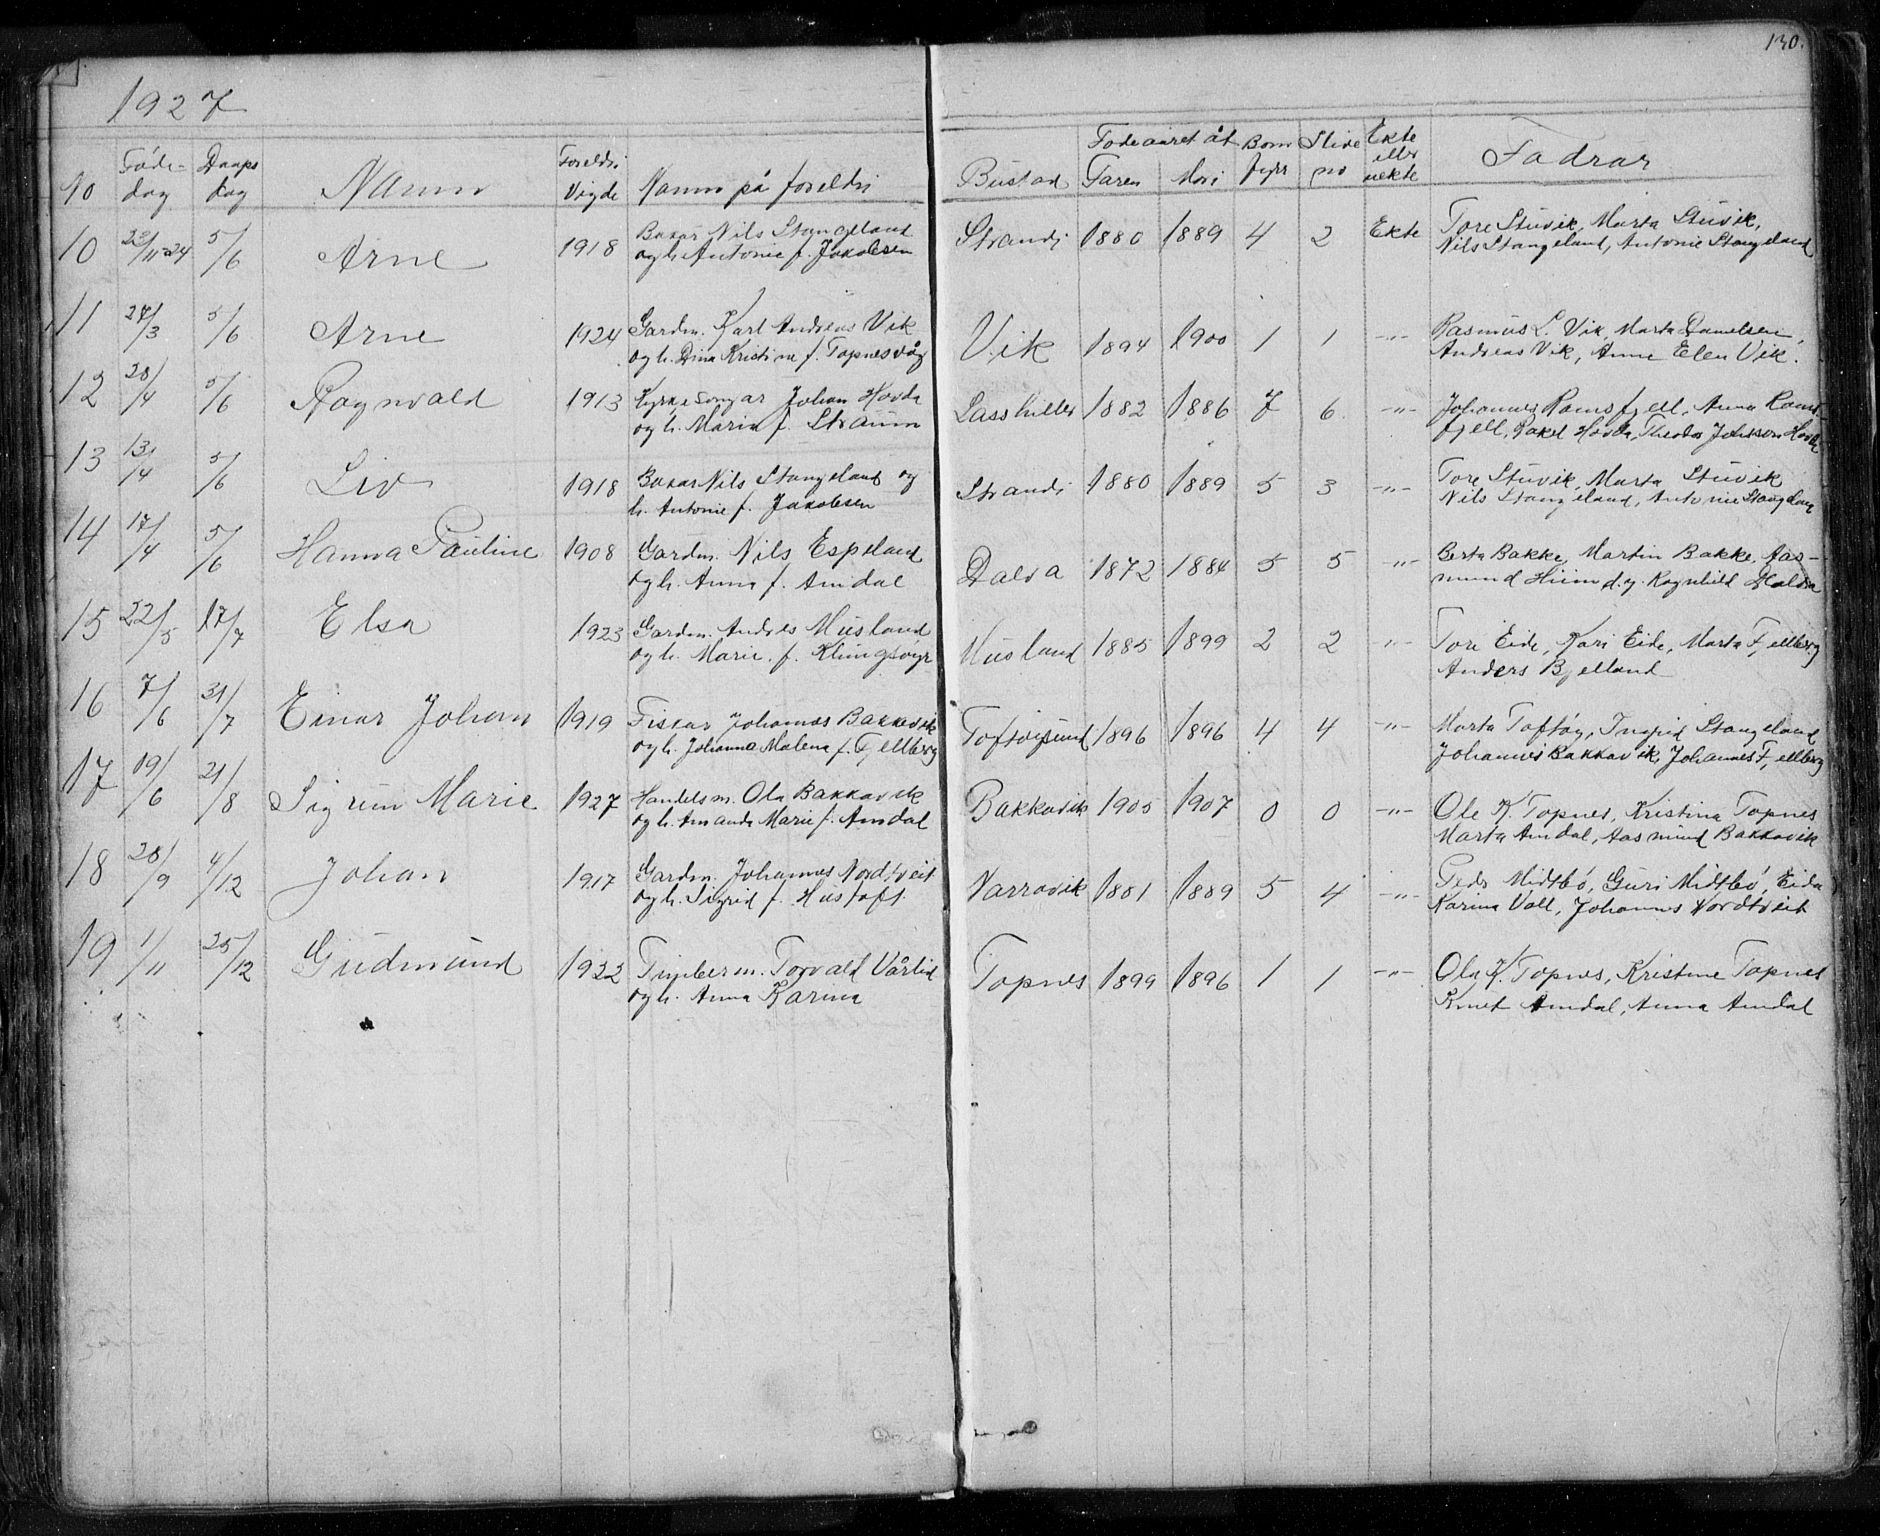 130.
1927
No Føde-dag Daaps dag Namn Foreldri Vigde Namn på foreldri Bustad Fødeaaret åt Faren Mori Born fyrr Stive no Ekte eller uekte Fadrar
10 23/11-24 5/6 Arne 1918 Bakar Nils Stangeland Strandi 1880 1889 4 2 Ekte Tore Stuvik, Marta Stuvik,
og h. Antonie f. Jakobsen Nils Stangeland, Antonie Stangeland
11 27/3 5/6 Arne 1924 Gardm. Karl Andreas Vik Vik 1894 1900 1 1 -"- Rasmus L. Vik, Marta Danielsen,
og h. Dina Kristine f. Topnesvåg Andreas Vik, Anne Elen Vik.
12 28/4 5/6 Ragnvald 1913 Kyrkjesongar Johan Hovda Lasshiller 1882 1886 7 6 -"- Johannes Ramsfjell, Anna Rams-
og h. Maria f. Straum fjell, Rakel Hovda, Theodor Johnsen Hovda
13 13/4 5/6 Liv 1918 Bakar Nils Stangeland og Strandi 1880 1889 5 3 -"- Tore Stuvik, Marta Stuvik
h. Antonie f. Jakobsen Nils Stangeland, Antonie Stangeland
14 17/4 5/6 Hanna Pauline 1908 Gardm. Nils Espeland Dalva 1872 1884 5 5 -"- Berta Bakke, Martin Bakke, Aas-
og h. Anna f. Amdal mund Hiim d.y. Ragnhild Dalva
15 22/5 17/7 Elsa 1923 Gardm. Andres Husland Husland 1885 1899 2 2 -"- Tore Eide, Kari Eide, Marta Fjellberg
og h. Marie f. Klungsøyr Anders Bjelland
16 7/6 31/7 Einar Johan 1919 Fiskar Johannes Bakkevik Toftøysund 1896 1896 4 4 -"- Marta Toftøy, Ingrid Stangeland
og h. Johanna Malena f. Fjellberg Johannes Bakkavik, Johannes Fjellberg
17 19/6 21/8 Sigrun Marie 1927 Handelsm. Ola Bakkavik Bakkavik 1905 1907 0 0 -"- Ole K. Topnes, Kristina Topnes
og h. Amanda Marie f. Amdal Marta Amdal, Aasmund Bakkavik
18 28/9 4/12 Johan 1917 Gardm. Johannes Nordtveit Narravik 1881 1889 5 4 -"- Peder Midtbø, Guri Midtbø, Eida
og h. Sigrid f. Hustoft Karina Voll, Johannes Nordtveit
19 1/11 25/12 Gudmund 1922 Timberm. Torvald Vårlid Topnes 1899 1896 1 1 -"- Ola K. Topnes, Kristine Topnes
og h. Anna Karina Knut Amdal, Anna Amdal